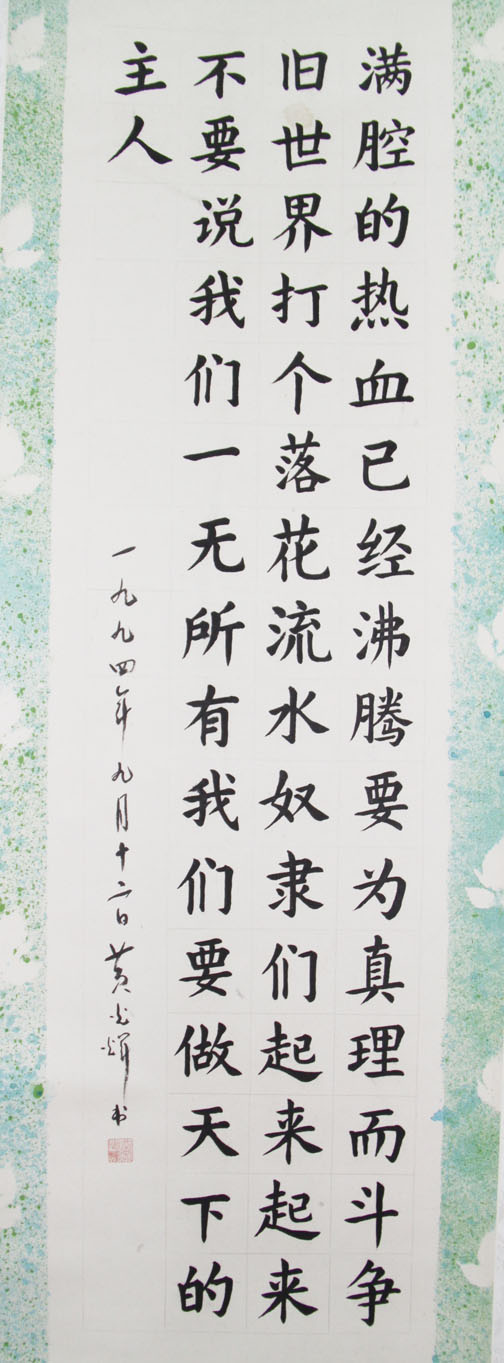 满腔的热血已经沸腾要为真理而斗争
旧世界打个落花流水奴隶们起来起来
不要说我们一无所有我们要做天下的
主人
一九九四年九月十二日黄光辉书